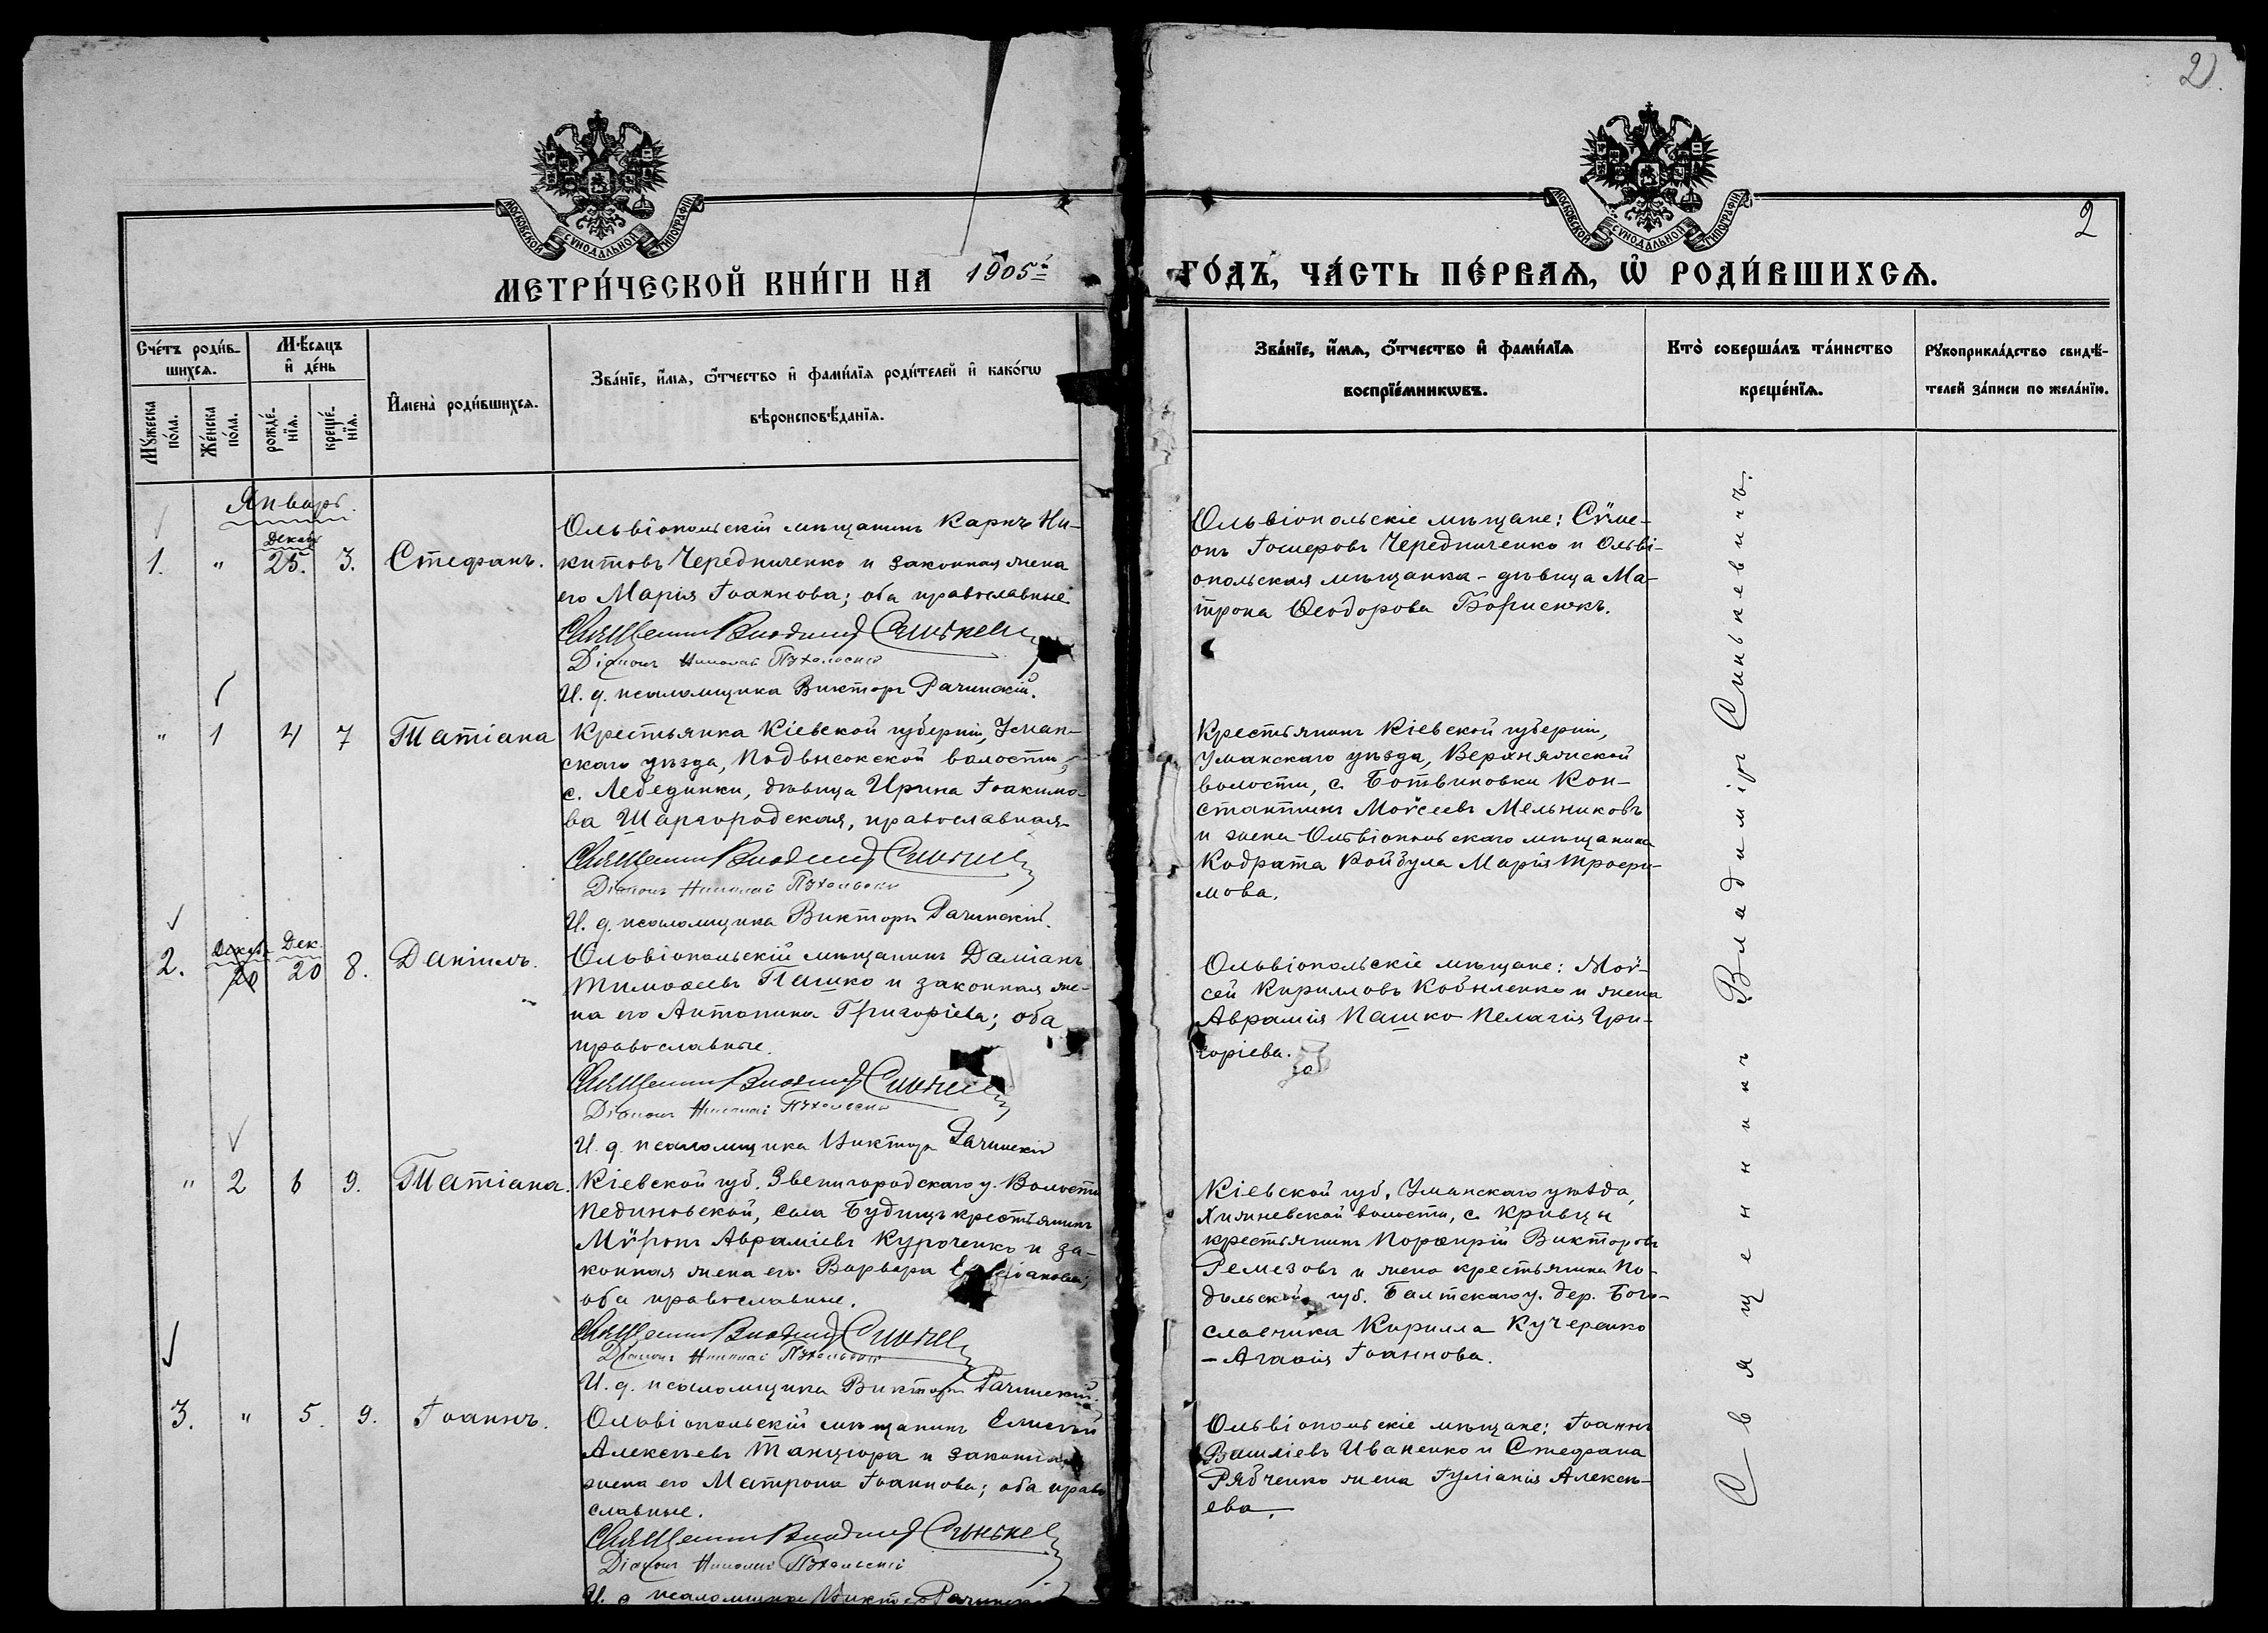 2
МОСКОВСКОЙ СѴНОДАЛЬНОЙ ТИПОГРАФІИ
МОСКОВСКОЙ СѴНОДАЛЬНОЙ ТИПОГРАФІИ
2
МЕТРИ́ЧЕСКОЙ КНИ́ГИ НА 1905й ГО́ДЪ, ЧА́СТЬ ПЕ́РВАѦ, Ѡ҆ РОДИ́ВШИХСѦ.
Сче́тъ роди́в-
шихсѧ.
Мꙋ́жеска
по́ла.
Же́нска
по́ла.
Мѣ́сѧцъ
и҆ де́нь
рожде́-
нїѧ.
креще́-
нїѧ.
И҆мена̀ роди́вшихсѧ.
Зва́нїе, и҆́мѧ, ѻ҆́тчество и҆ фами́лїѧ роди́телей и҆ како́гѡ
вѣроисповѣ́данїѧ.
Зва́нїе, и҆́мѧ, ѻ҆́тчество и҆ фами́лїѧ
воспрїе́мникѡвъ.
Кто̀ соверша́лъ та́инство
креще́нїѧ.
Рꙋкоприкла́дство свидѣ́-
телей за́писи по жела́нїю.
Январь.
1. " Декабр 25. 3. Стефанъ.
Ольвіопольскій мѣщанинъ Карпъ Ни-
китовъ Чередниченко и законная жена
его Марія Іоаннова; оба православные
Священникъ Владиміръ Синькевичъ
Діаконъ Николай
И. д. псаломщика Викторъ Рачинскій.
Ольвіопольскіе мѣщане: Сѵме-
онъ Чередниченко и Ольві-
опольская мѣщанка - дѣвица Ма-
трона Ѳеодорова Борисюкъ.
" 1 4 7 Татіана
Крестьянка Кіевской губерніи, Уман-
скаго уѣзда, Подвысокской волости,
с. Лебединки, дѣвица Ирина Іоакимо-
ва Шаргородская, православная
Священникъ Владиміръ Синькевичъ
Діаконъ Николай
И. д. псаломщика Викторъ Рачинскій.
Крестьянинъ Кіевской губерніи,
Уманскаго уѣзда, Верхнячской
волости, с. Ботвиновки Кон-
стантинъ Моѵсеевъ Мельниковъ
и жена Ольвіопольскаго мѣщанина
Кодрата Койбула Марія Трофи-
мова.
2. Декаб 20 Дек. 20 8. Даніилъ.
Ольвіопольскій мѣщанинъ Даміанъ
Тимоѳеевъ Пашко и законная же-
на его Антонина Григоріева; оба
православные.
Священникъ Владиміръ Синькевичъ
Діаконъ Николай
И. д. псаломщика Викторъ Рачинскій
Ольвіопольскіе мѣщане: Моѵ-
сей Кирилловъ Кобыленко и жена
Аврамія Пашко Пелагія Гри-
горіева.
" 2 6 9. Татіана.
Кіевской губ. Звенигородскаго у. Волости
Пединовской, села Будищъ крестьянинъ
Мѵронъ Авраміевъ Куроченко и за-
конная жена его Варвара
оба православные.
Священникъ Владиміръ Синькевичъ
Діаконъ Николай
И. д. псаломщика Викторъ Рачинскій.
Кіевской губ. Уманскаго уѣзда,
Хижневской волости, с. Кривцы
крестьянинъ Порфирій Викторовъ
Ремезовъ и жена крестьянина По-
дольской губ. Балтскаго у. дер. Бого-
словчика Кирилла Кучеренко
- Агаѳія Іоаннова.
3. " 5. 9. Іоаннъ.
Ольвіопольскій мѣщанинъ Елисей
Алексѣевъ Танцюра и законная
жена его Матрона Іоаннова; оба право
славные.
Священникъ Владиміръ Синькевичъ
Діаконъ Николай
И. д. псаломщика Викторъ Рачинскій
Ольвіопольскіе мѣщане: Іоаннъ
Василіевъ Иваненко и Стефана
Рябченко жена Іуліанія Алексѣ-
ева.
Священникъ Владиміръ Синькевичъ.